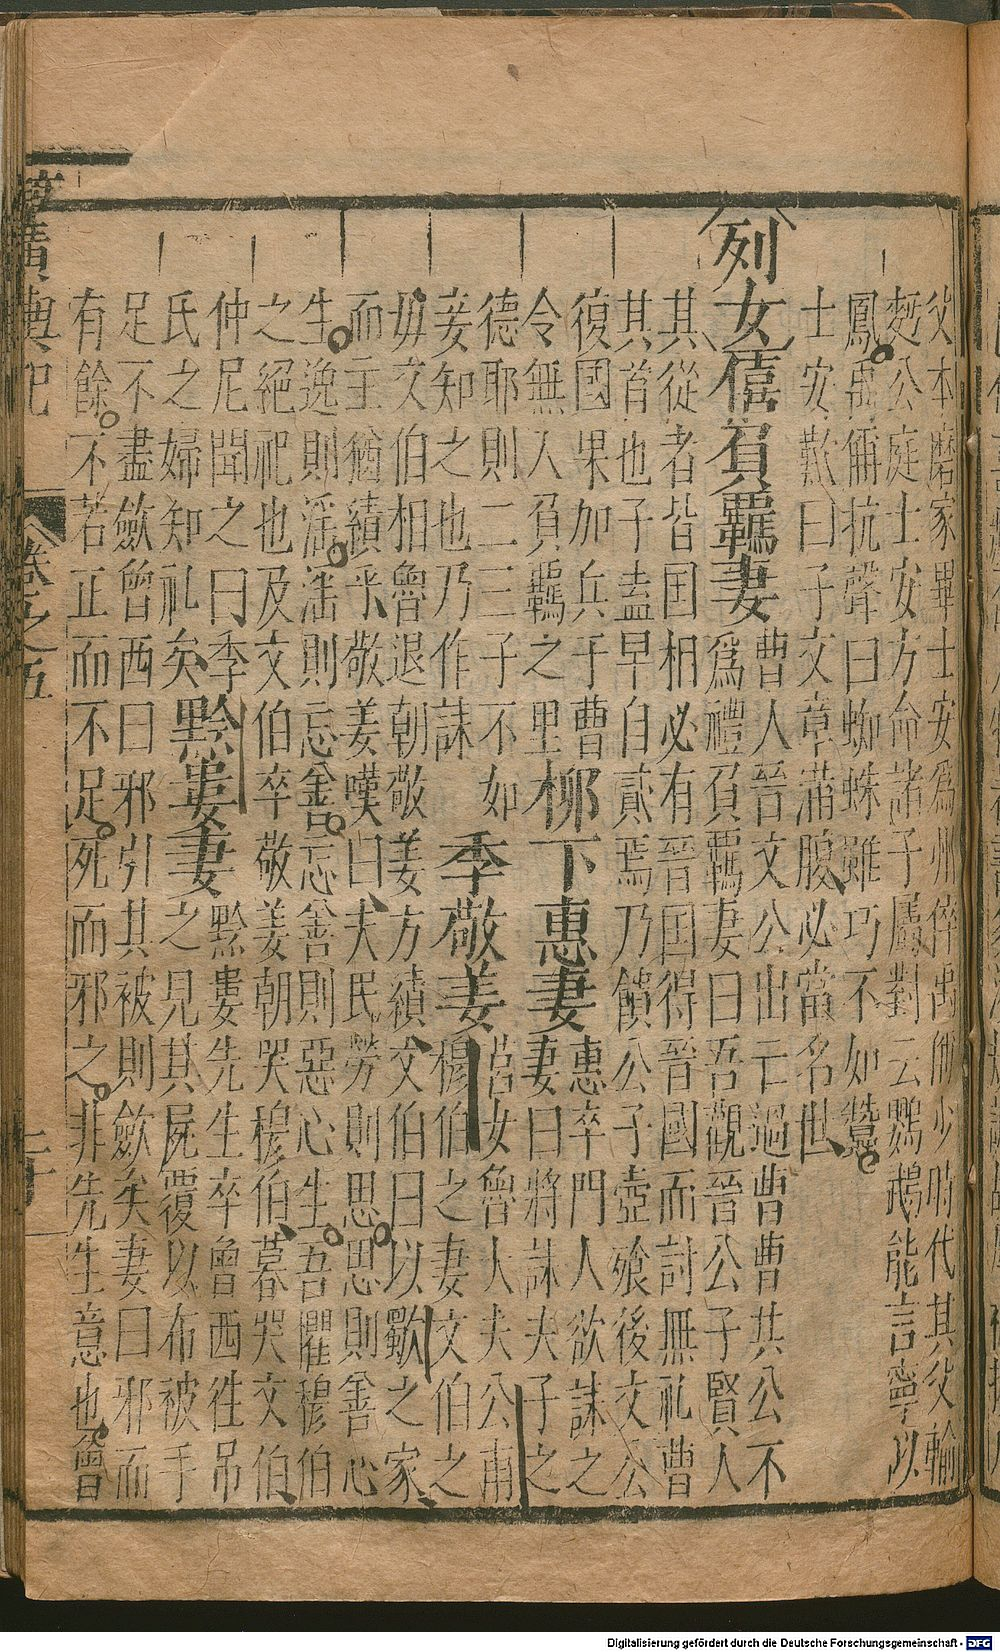 父本磨家畢士安爲州倅禹偁少時代其父輸
麫公庭士安方命諸子屬對云鸚鵡能言寧以
鳳禹偁抗聲曰蜘蛛雖巧不如蠶
士安歎曰子文章滿腹必當名世
列女僖負羈妻 曹人晉文公出亡過曹曹共公不
爲禮負羈妻曰吾觀晉公子賢人
其從者皆国相必有晉国得晉國而討無礼曹
其首也子盍早自貳焉乃饋公子壺飱後文公
復國果加兵于曹
令無入負羈之里
柳下惠妻 惠卒門人欲誄之
妻曰將誄夫子之
德耶則二三子不如
妾知之也乃作誄
季敬姜 莒女魯大夫公甫
穆伯之妻文伯之
毋文伯相魯退朝敬姜方績文伯曰以歜之家
而主猶績乎敬姜嘆曰夫民勞則思思則善心
生逸則淫淫則忘善忘善則惡心生吾懼穆伯
之絕祀也及文伯卒敬姜朝哭穆伯暮哭文伯
仲尼聞之曰季
氏之婦知礼矣
黔婁妻 黔婁先生卒曾西徃吊
之見其屍覆以布被手
足不盡斂曾西曰邪引其被則斂矣妻曰邪而
有餘不若正而不足死而邪之非先生意也曾
卷之五
Digitalisierung gefördert durch die Deutsche Forschungsgemeinschaft - DFG